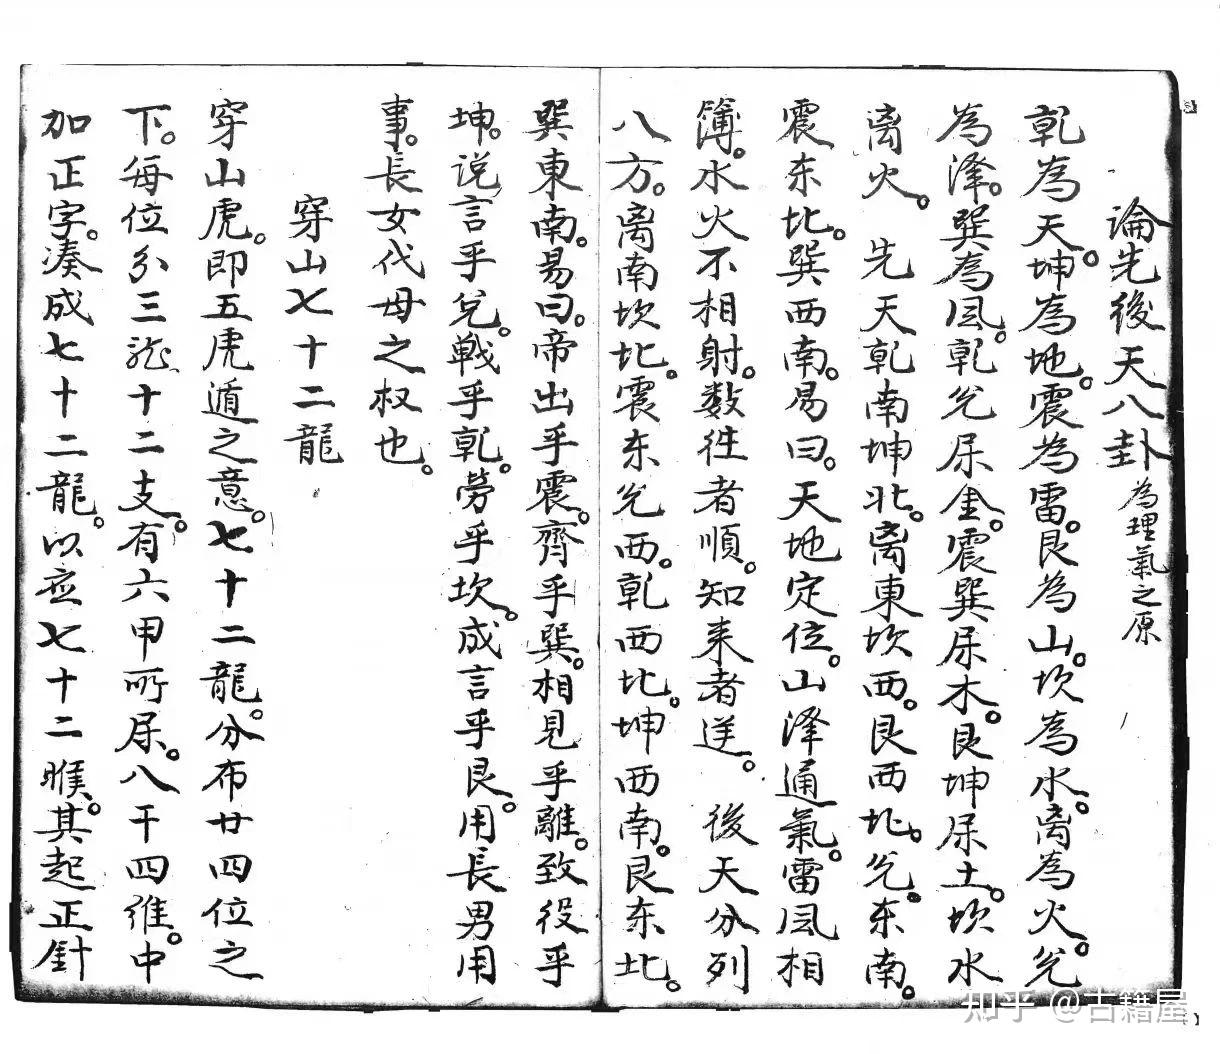 論先後天八卦 為理氣之原
乾為天。坤為地。震為雷。艮為山。坎為水。离為火。兊
為泽。巽為风。乾兊属金。震巽属木。艮坤属土。坎水
离火。 先天乾南坤北。离東坎西。艮西北。兊东南。
震东北。巽西南。易曰。天地定位。山泽通氣。雷风相
簿。水火不相射。数往者順。知来者逆。 後天分列
八方。离南坎北。震东兊西。乾西北。坤西南。艮东北。
巽東南。易曰。帝出乎震。齊乎巽。相見乎離。致役乎
坤。说言乎兊。戰乎乾。勞乎坎。成言乎艮。用長男用
事。長女代母之权也。
穿山七十二龍
穿山虎。即五虎遁之意。七十二龍。分布廿四位之
下。每位分三龙十二支。有六甲所属。八干四維。中
加正字。凑成七十二龍。以应七十二候。其起正針
知乎 @古籍屋